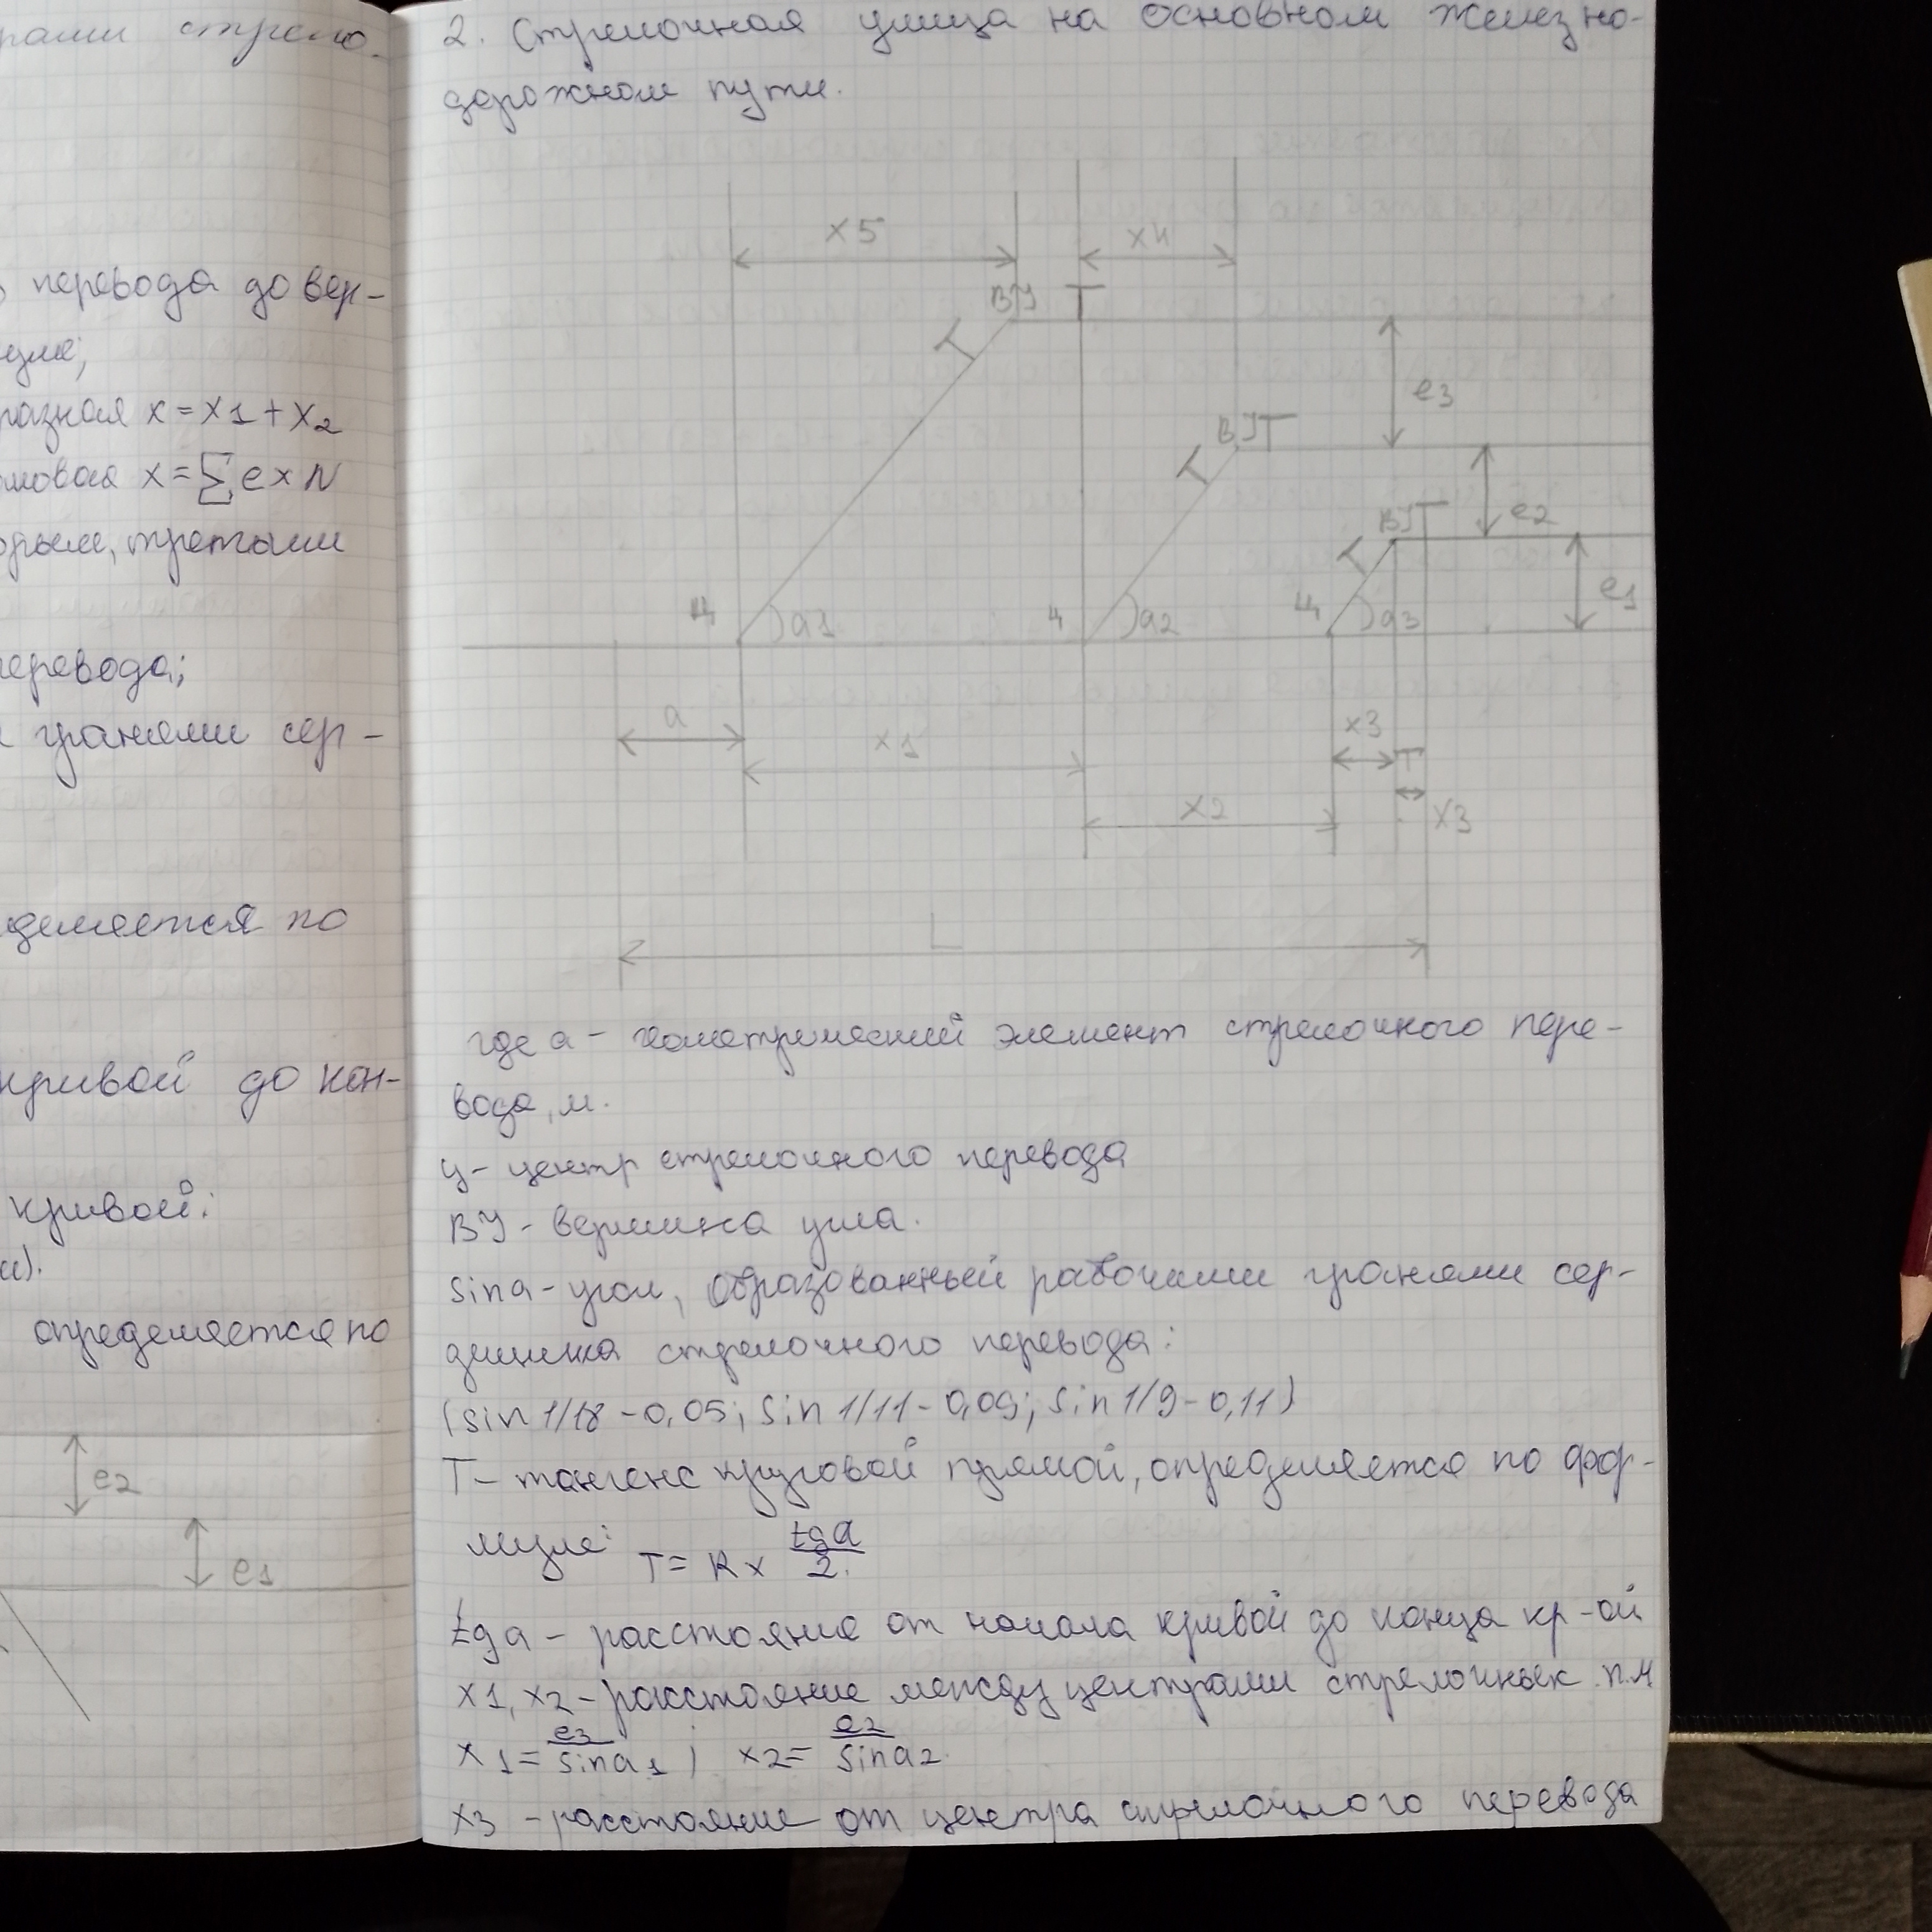 стрело-
перевода до вер-
x = x1 + x2
x = ∑ e x N
третьими
перевода;
гранями сер-
деляется по
кривой до кон-
кривой:
определяется по
e2
e1
2. Стрелочная улица на основном железно-
дорожном пути.
x5
x4
ВУ
T
T
e3
ВУ
T
T
e2
ВУ
T
T
e1
Ц
a1
Ц
a2
Ц
a3
a
x1
x3
T
x2
x3
L
где a - геометрический элемент стрелочного пере-
вода, м.
ц - центр стрелочного перевода
ВУ - вершина угла.
sin a - угол, образованный рабочими гранями сер-
дечника стрелочного перевода:
(sin 1/18 - 0,05; sin 1/11 - 0,09; sin 1/9 - 0,11)
T - тангенс круговой прямой, определяется по фор-
муле: T = R x tg a / 2.
tg a - расстояние от начала кривой до конца кр-ой
x1, x2 - расстояние между центрами стрелочных
x1 = e3 / sin a1; x2 = e2 / sin a2.
x3 - расстояние от центра стрелочного перевода